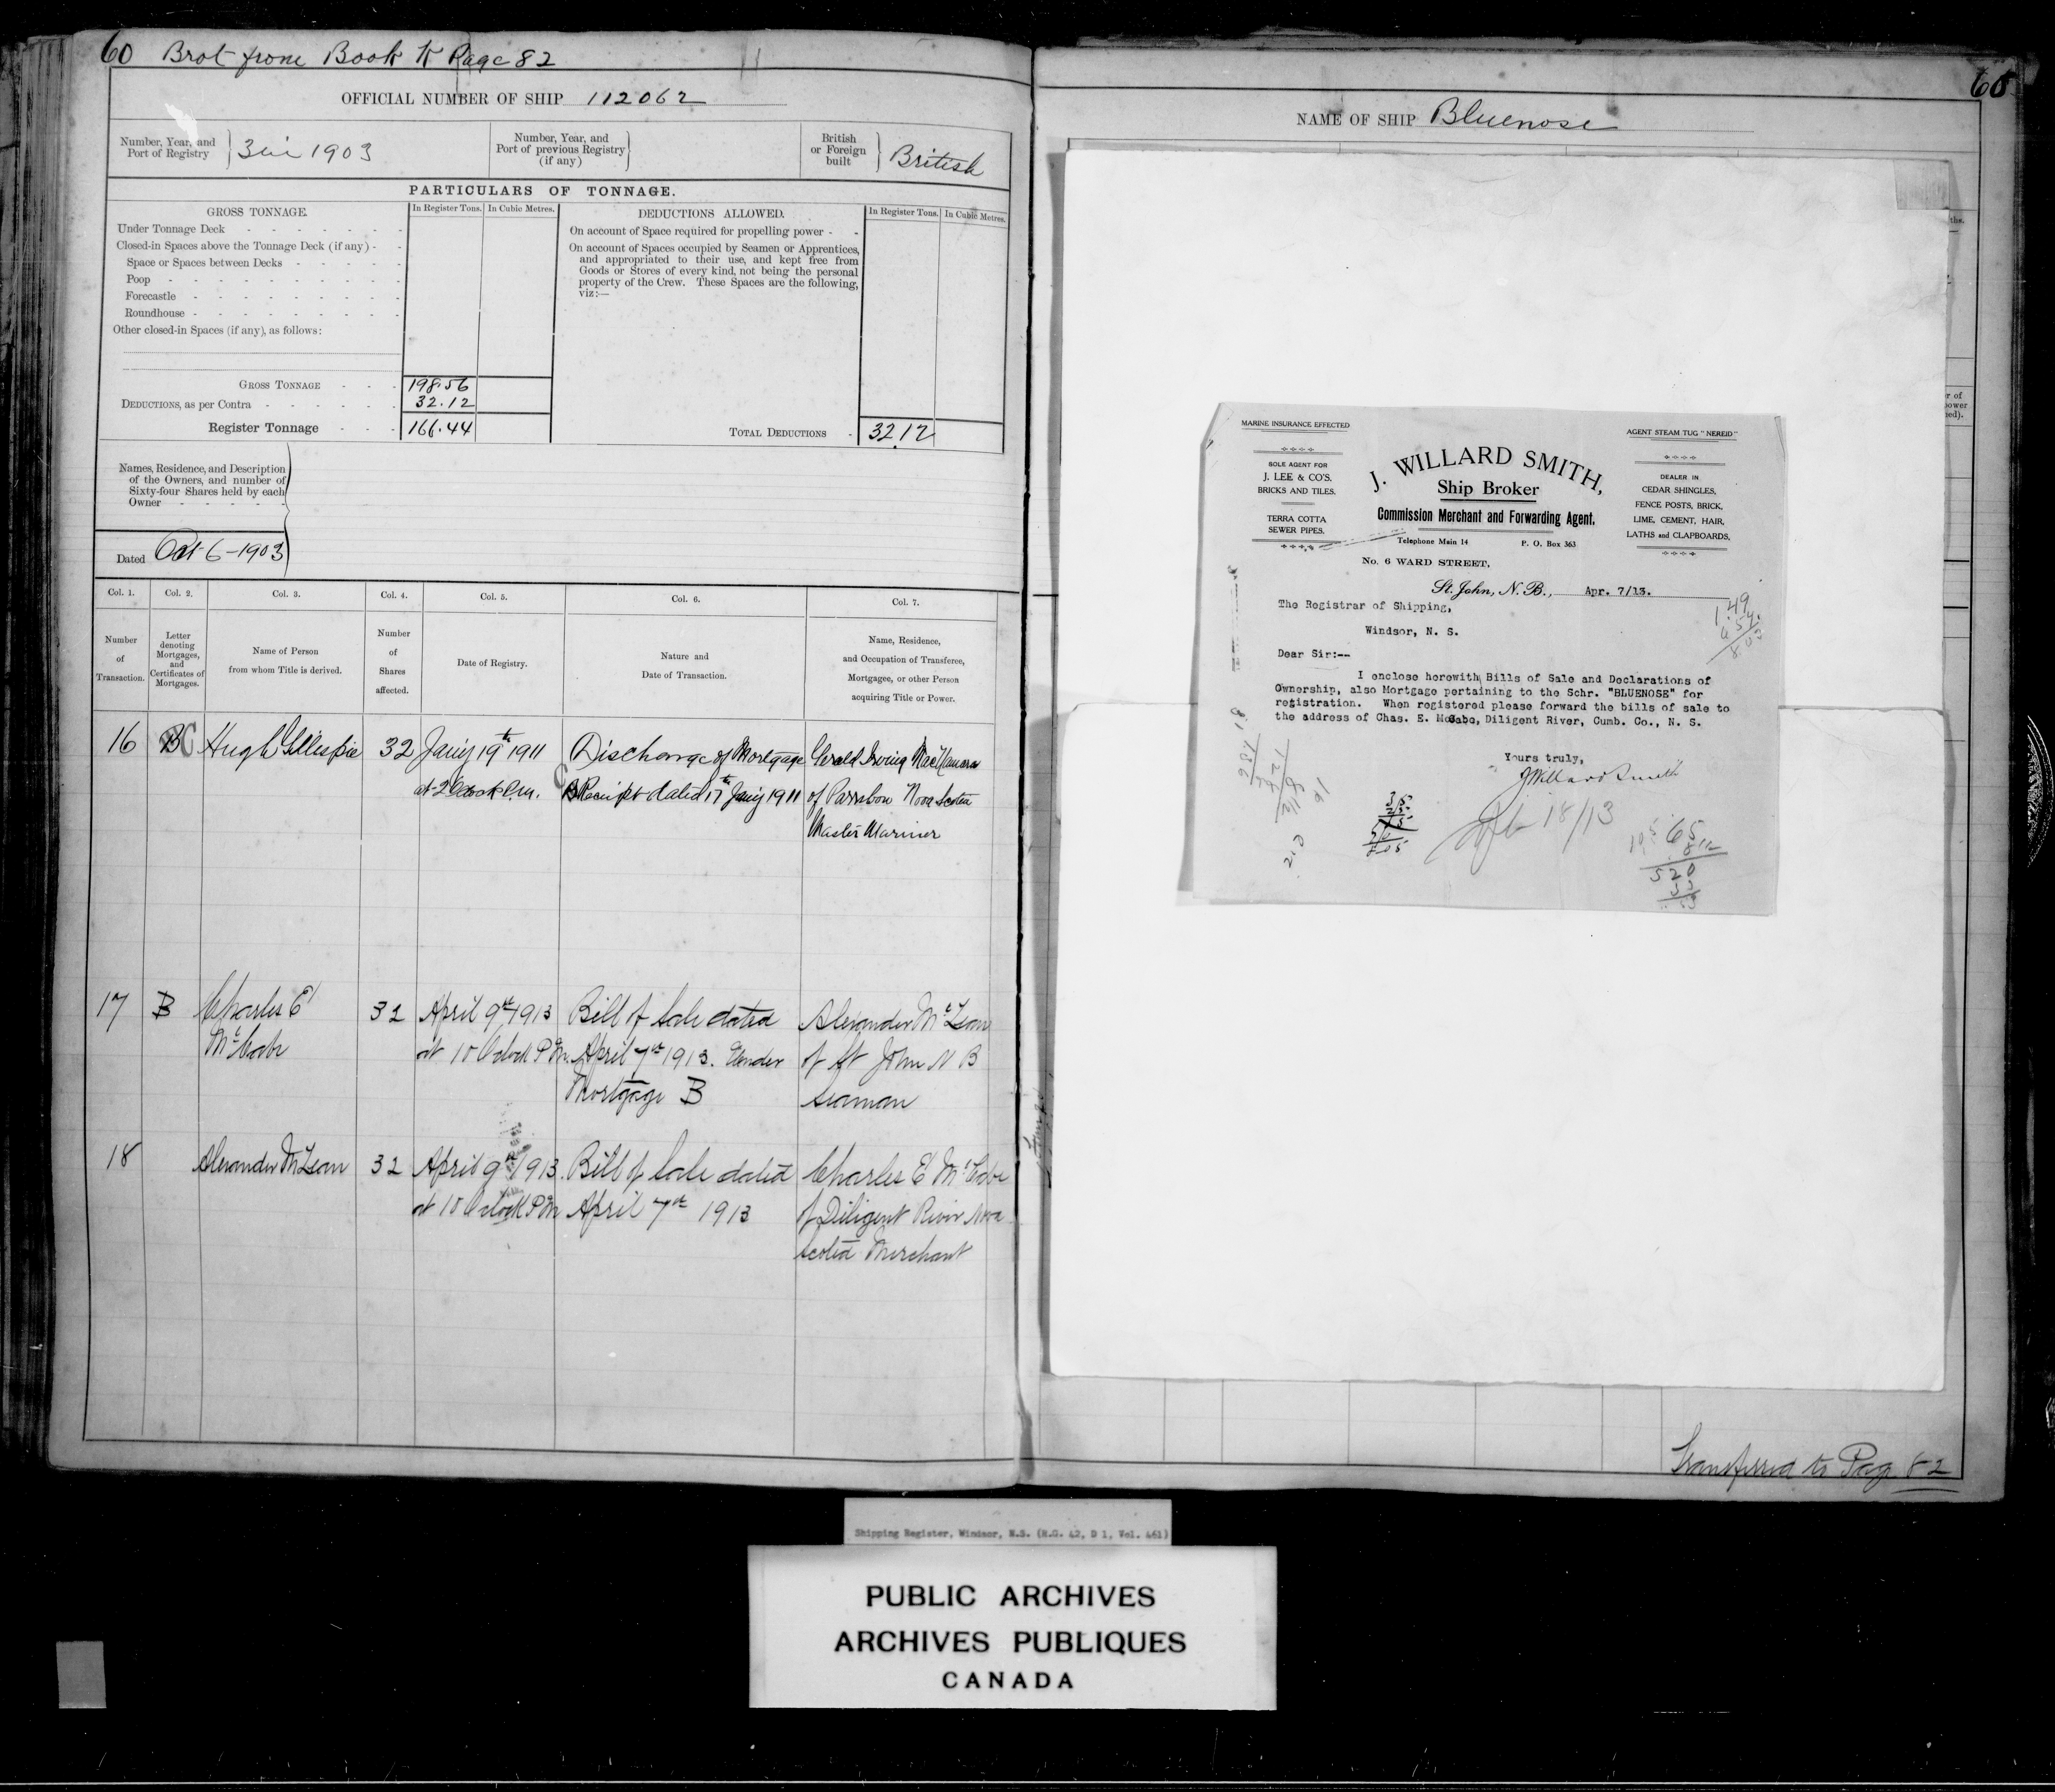 60 Brot from Book K Page 82
OFFICIAL NUMBER OF SHIP 112062
Number, Year, and Port of Registry 3 1903
Number, Year, and Port of previous Registry (if any)
British or Foreign built British
PARTICULARS OF TONNAGE.
GROSS TONNAGE. In Register Tons. In Cubic Metres.
Under Tonnage Deck
Closed-in Spaces above the Tonnage Deck (if any)
Space or Spaces between Decks
Poop
Forecastle
Roundhouse
Other closed-in Spaces (if any), as follows:
GROSS TONNAGE 198.56
DEDUCTIONS, as per Contra 32.12
Register Tonnage 166.44
DEDUCTIONS ALLOWED. In Register Tons. In Cubic Metres.
On account of Space required for propelling power
On account of Spaces occupied by Seamen or Apprentices,
and appropriated to their use, and kept free from
Goods or Stores of every kind, not being the personal
property of the Crew. These Spaces are the following,
viz:—
TOTAL DEDUCTIONS 32.12
Names, Residence, and Description
of the Owners, and number of
Sixty-four Shares held by each
Owner
Dated Oct 6-1903
Col. 1. Col. 2. Col. 3. Col. 4. Col. 5. Col. 6. Col. 7.
Number of Transaction.
Letter denoting Mortgages, and Certificates of Mortgages.
Name of Person from whom Title is derived.
Number of Shares affected.
Date of Registry.
Nature and Date of Transaction.
Name, Residence, and Occupation of Transferee, Mortgagee, or other Person acquiring Title or Power.
16 C Hugh Gillespie 32 Jan'y 19th 1911 Discharge of Mortgage Gerald Irving MacNamara
at 2 Oclock P.M. C Receipt dated 17th Jan'y 1911 of Parrsboro Nova Scotia
Master Mariner
17 B Charles E 32 April 9th 1913 Bill of Sale dated Alexander McLean
McCabe at 10 Oclock April 7th 1913. Under of St John N B
Mortgage B Seaman
18 Alexander McLean 32 April 9th 1913. Bill of Sale dated Charles E McCabe
at 10 Oclock April 7th 1913 of Diligent River Nova
Scotia Merchant
60
NAME OF SHIP Bluenose
MARINE INSURANCE EFFECTED
SOLE AGENT FOR
J. LEE & CO'S.
BRICKS AND TILES.
TERRA COTTA
SEWER PIPES.
J. WILLARD SMITH,
Ship Broker
Commission Merchant and Forwarding Agent.
Telephone Main 14 P. O. Box 363
AGENT STEAM TUG "NEREID"
DEALER IN
CEDAR SHINGLES,
FENCE POSTS, BRICK,
LIME, CEMENT, HAIR,
LATHS and CLAPBOARDS,
No. 6 WARD STREET,
St. John, N. B., Apr. 7/13.
The Registrar of Shipping,
Windsor, N. S.
Dear Sir:--
I enclose herewith Bills of Sale and Declarations of
Ownership, also Mortgage pertaining to the Schr. "BLUENOSE" for
registration. When registered please forward the bills of sale to
the address of Chas. E. McCabe, Diligent River, Cumb. Co., N. S.
Yours truly,
J Willard Smith
18/13
65
520
Transferred to Page 82
Shipping Register, Windsor, N.S. (R.G. 42, D 1, Vol. 461)
PUBLIC ARCHIVES
ARCHIVES PUBLIQUES
CANADA